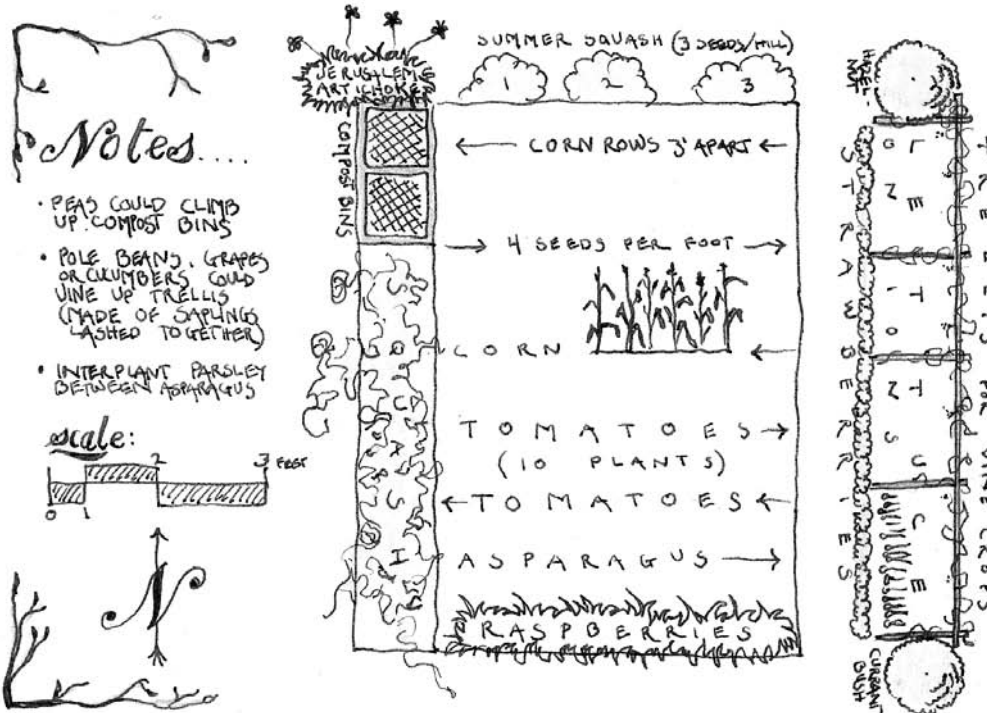 Notes....
• PEAS COULD CLIMB
UP COMPOST BINS
• POLE BEANS, GRAPES
OR CUCUMBERS COULD
VINE UP TRELLIS
(MADE OF SAPLINGS
LASHED TOGETHER)
• INTERPLANT PARSLEY
BETWEEN ASPARAGUS
scale:
0 1 2 3 FEET
N
JERUSALEM
ARTICHOKE
COMPOST BINS
SUMMER SQUASH (3 SEEDS/HILL)
1 2 3
CORN ROWS 3' APART
4 SEEDS PER FOOT
CORN
TOMATOES
(10 PLANTS)
TOMATOES
ASPARAGUS
RASPBERRIES
HAZEL-
NUT
STRAWBERRIES
ONIONS
LETTUCE
TRELLIS FOR VINE CROPS
CURRANT
BUSH